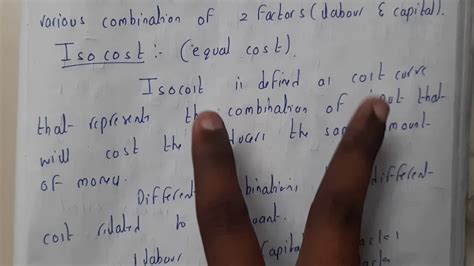 various combination of 2 factors (labour & capital).
Isocost :- (equal cost).
Isocost is defined as cost curve
that represents the combination of that
will cost the the amount
of money.
Different different
cost related to
labour